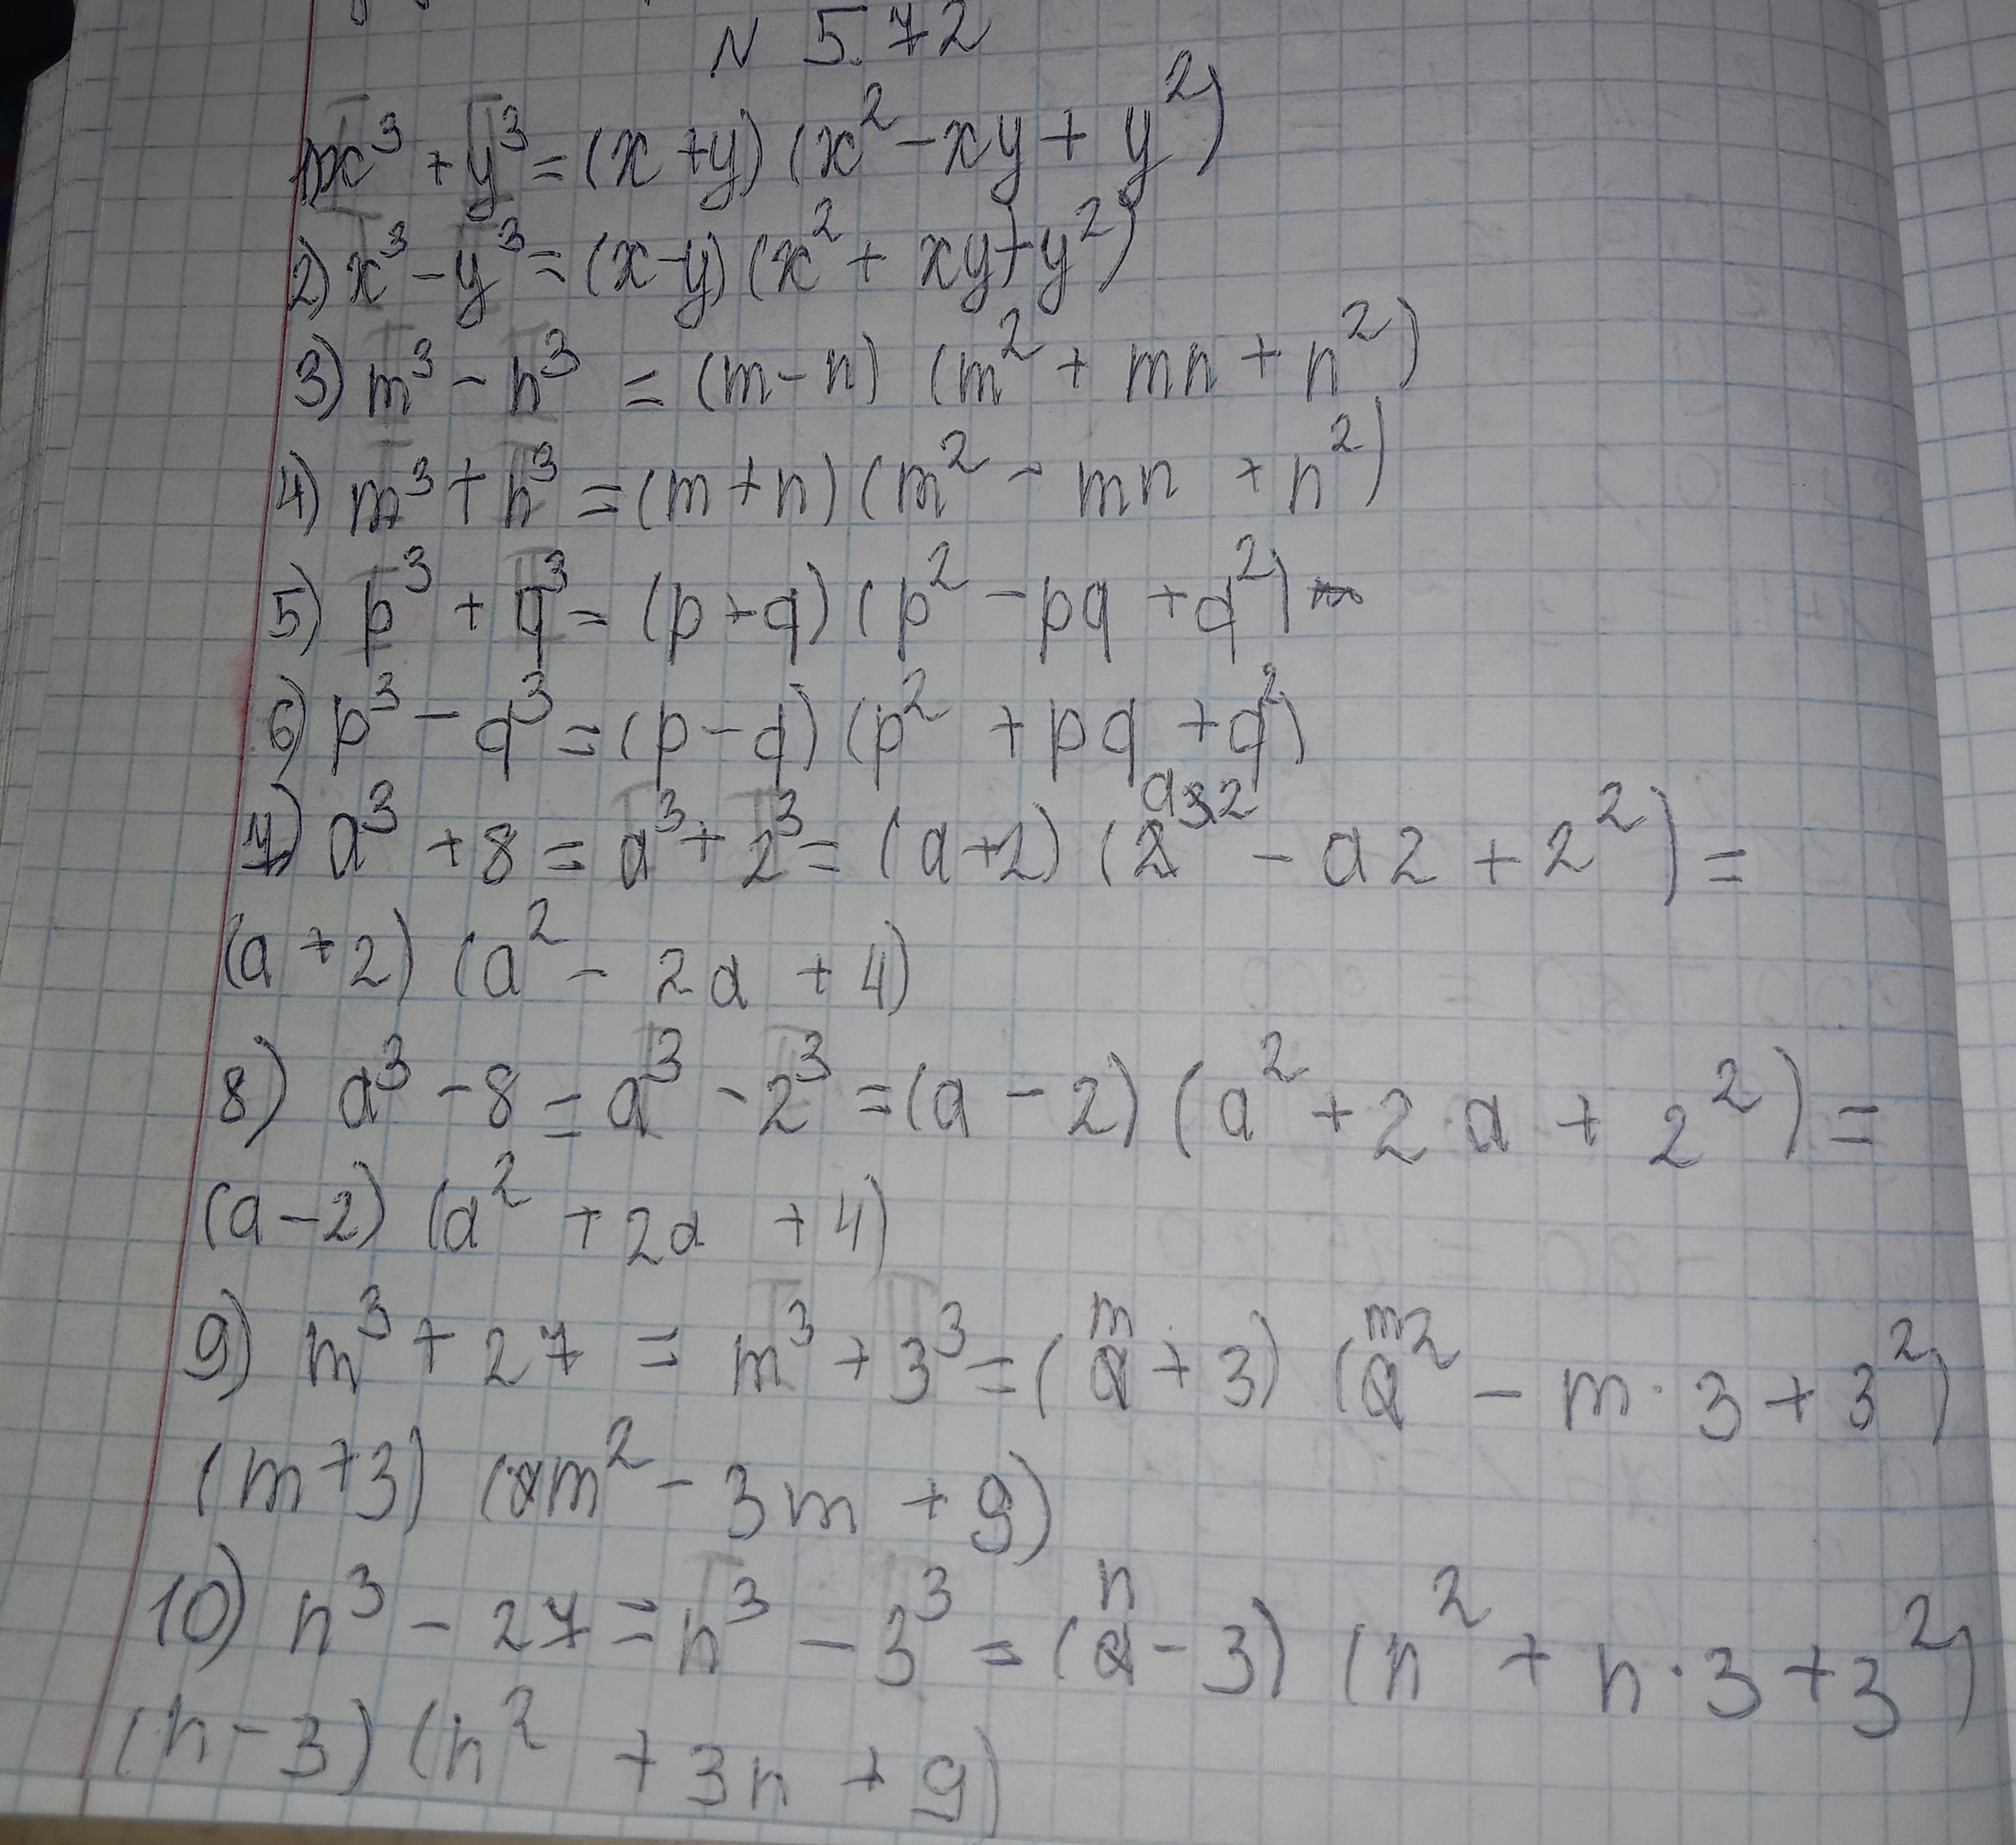 N 5.72
1) x³ + y³ = (x + y) (x² - xy + y²)
2) x³ - y³ = (x - y) (x² + xy + y²)
3) m³ - n³ = (m - n) (m² + mn + n²)
4) m³ + n³ = (m + n) (m² - mn + n²)
5) p³ + q³ = (p + q) (p² - pq + q²)
6) p³ - q³ = (p - q) (p² + pq + q²)
7) a³ + 8 = a³ + 2³ = (a + 2) (a² - a2 + 2²) =
(a + 2) (a² - 2a + 4)
8) a³ - 8 = a³ - 2³ = (a - 2) (a² + 2·a + 2²) =
(a - 2) (a² + 2a + 4)
9) m³ + 27 = m³ + 3³ = (m + 3) (m² - m · 3 + 3²)
(m + 3) (m² - 3m + 9)
10) n³ - 27 = n³ - 3³ = (n - 3) (n² + n · 3 + 3²)
(n - 3) (n² + 3n + 9)